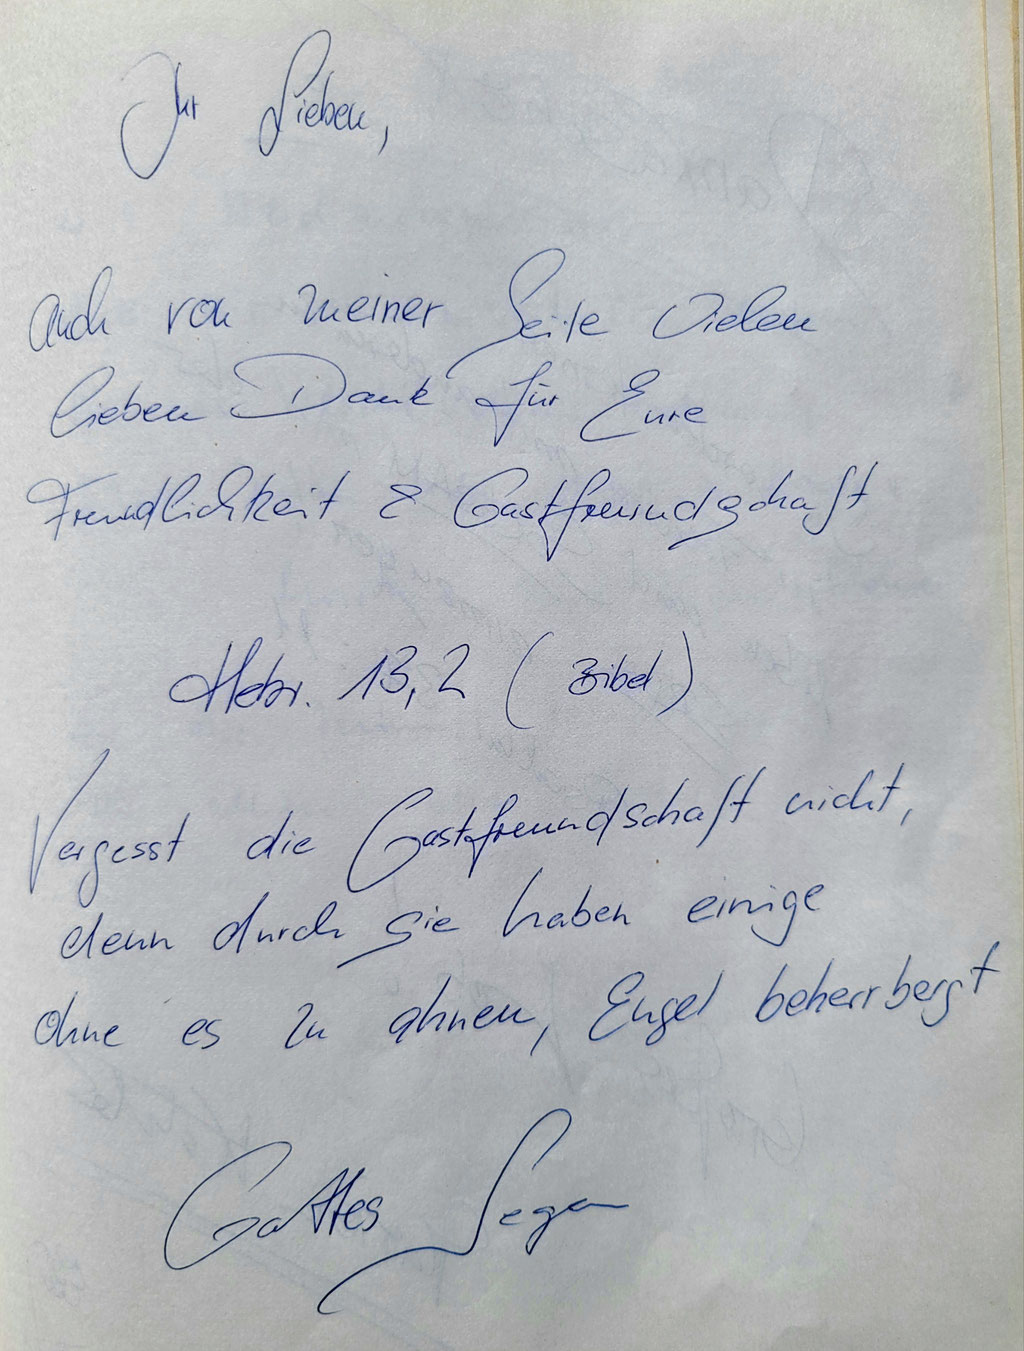 Ihr Lieben,
auch von meiner Seite Vielen
lieben Dank für Eure
Freundlichkeit & Gastfreundschaft
Hebr. 13,2 (Bibel)
Vergesst die Gastfreundschaft nicht,
denn durch sie haben einige
ohne es zu ahnen, Engel beherrbergt
Gottes Segen